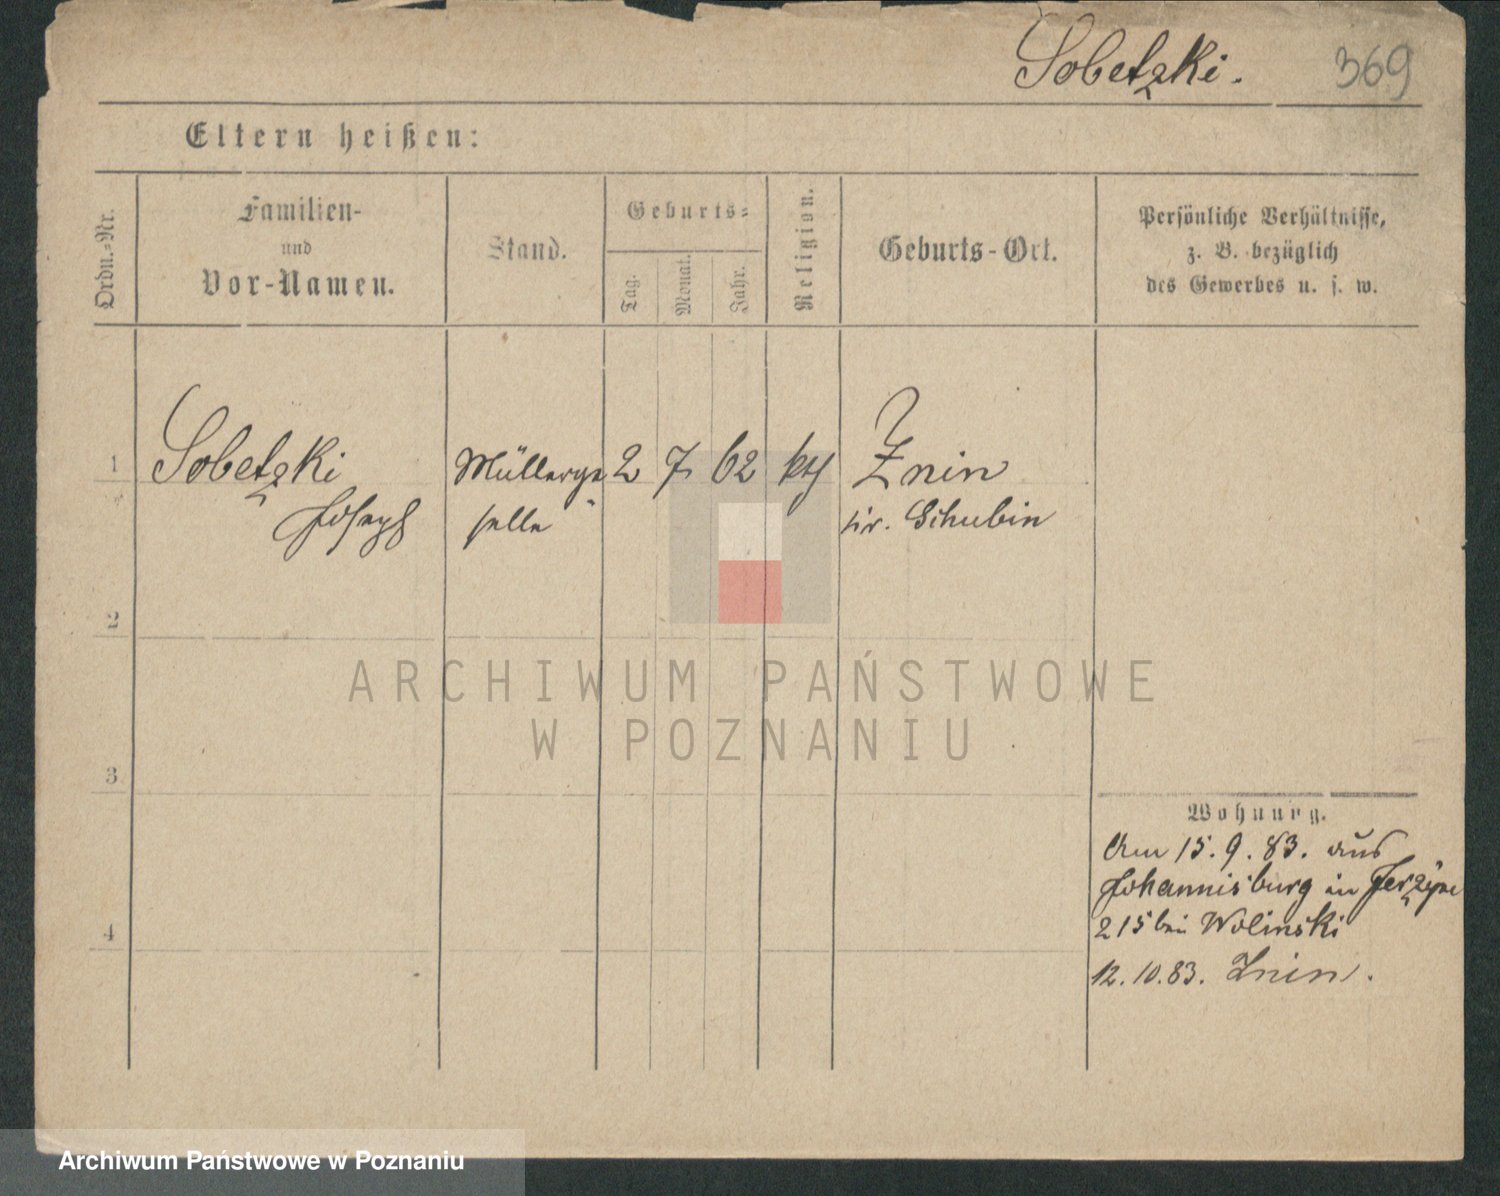 Sobetzki. 369
Eltern heißen:
Ordn.-Nr.
Familien-
und
Vor-Namen.
Stand.
Geburts-
Tag.
Monat.
Jahr.
Religion.
Geburts-Ort.
Persönliche Verhältnisse,
z. B. bezüglich
des Gewerbes u. s. w.
1 Sobetzki Müllerge 2 7 62 kth Znin
Joseph selle Kr. Schubin
2
3
4
Wohnung.
Am 15. 9. 83. aus
Johannisburg in
215 bei Wolinski
12. 10. 83. Znin.
ARCHIWUM PAŃSTWOWE
W POZNANIU
Archiwum Państwowe w Poznaniu